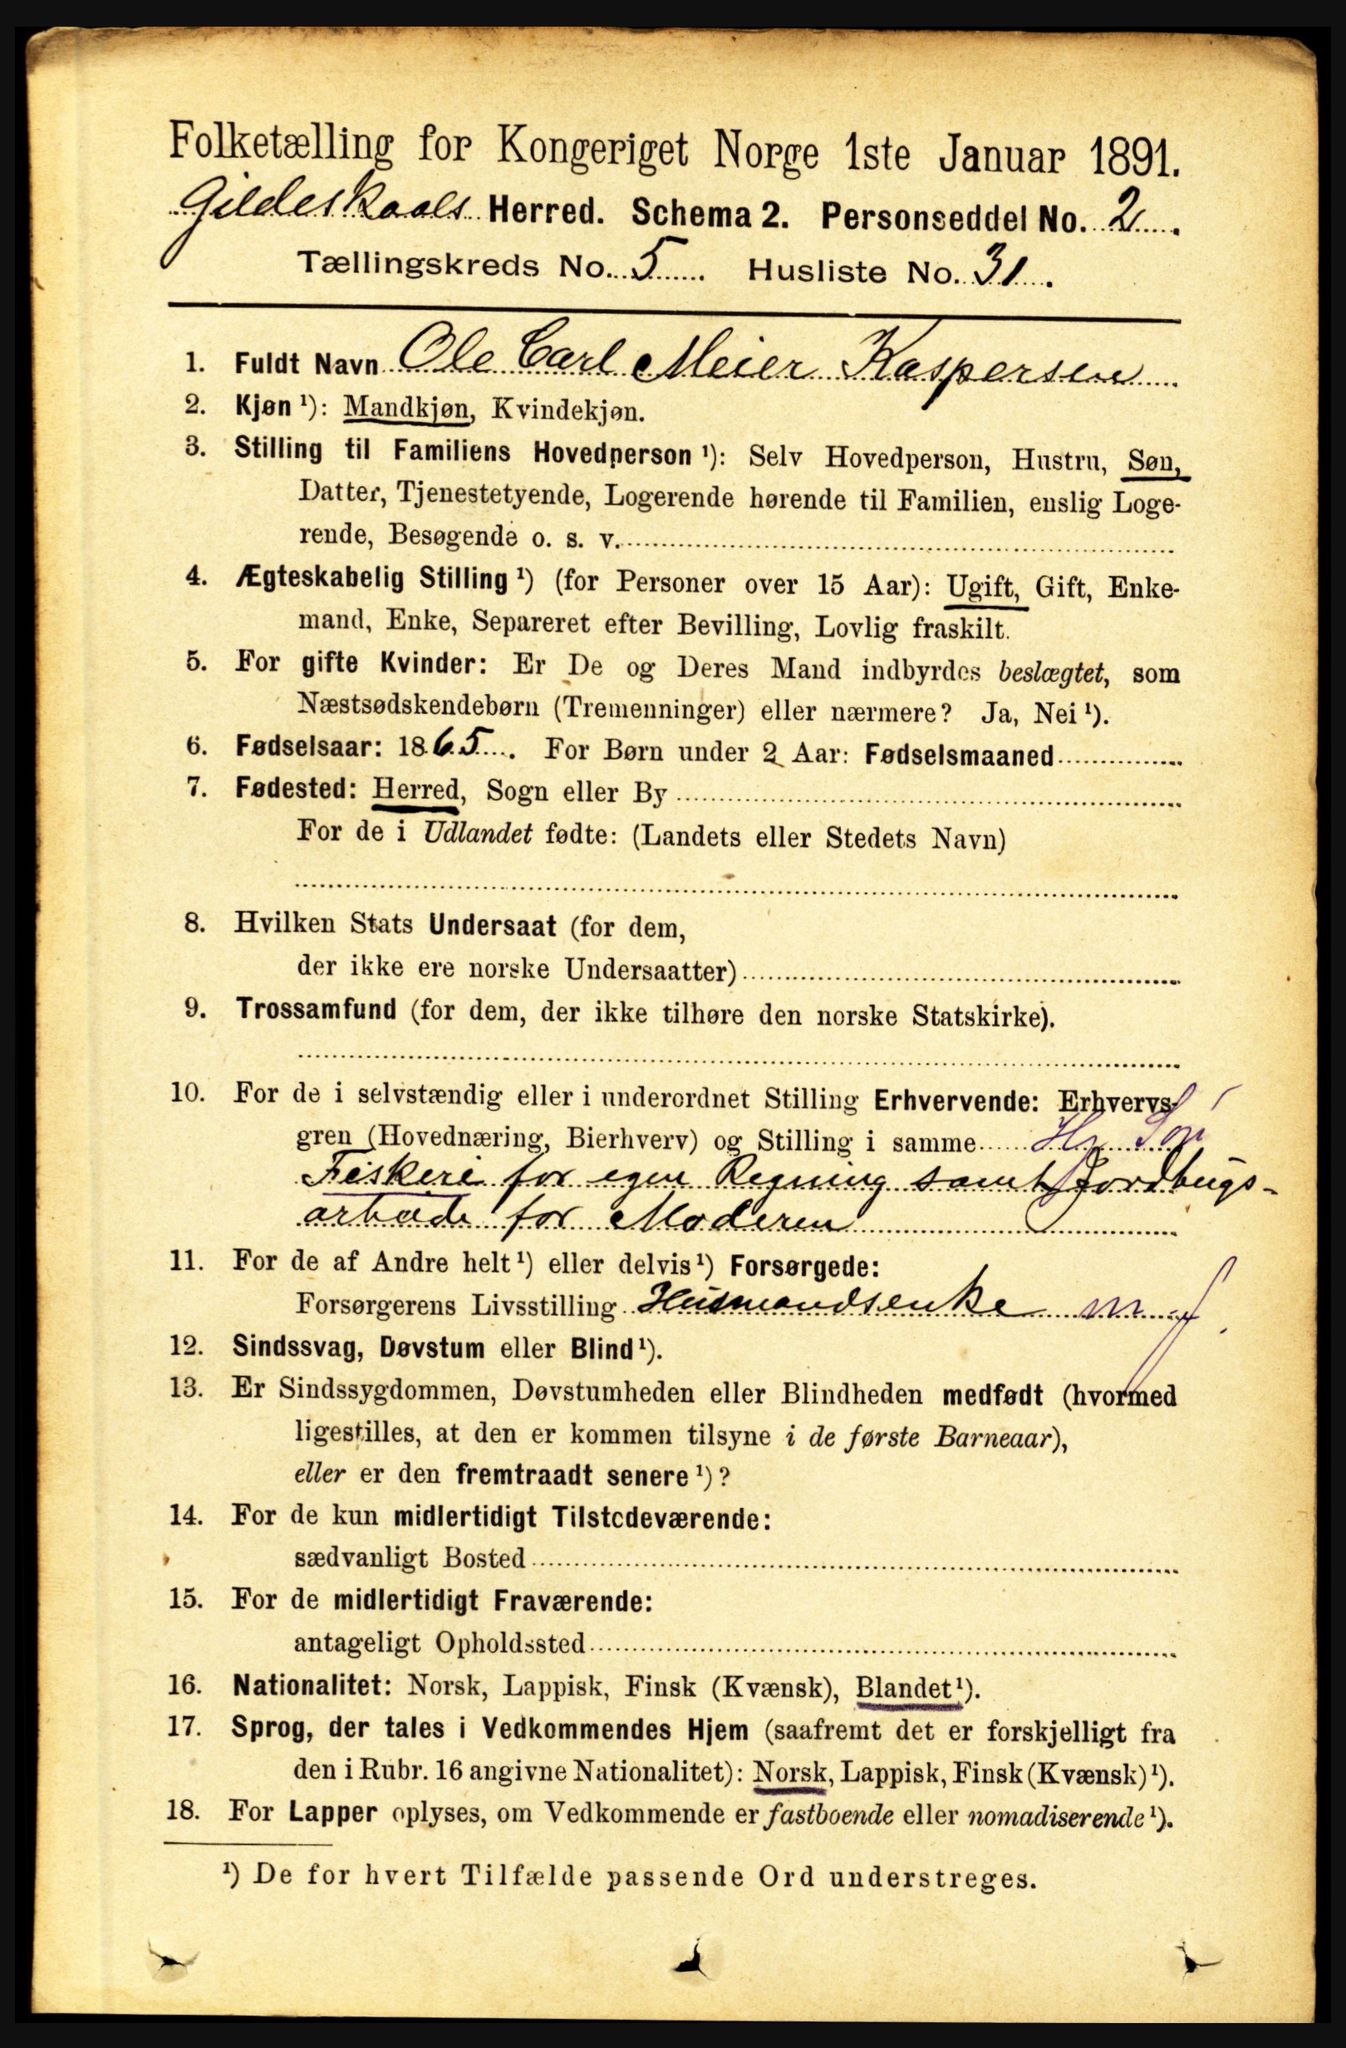 Folketælling for Kongeriget Norge 1ste Januar 1891.
Gildeskaals Herred. Schema 2. Personseddel No. 2.
Tællingskreds No. 5. Husliste No. 31.
1. Fuldt Navn Ole Carl Meier Kaspersen
2. Kjøn ¹): Mandkjøn, Kvindekjøn.
3. Stilling til Familiens Hovedperson ¹): Selv Hovedperson, Hustru, Søn,
Datter, Tjenestetyende, Logerende hørende til Familien, enslig Loge-
rende, Besøgende o. s. v.
4. Ægteskabelig Stilling ¹) (for Personer over 15 Aar): Ugift, Gift, Enke-
mand, Enke, Separeret efter Bevilling, Lovlig fraskilt.
5. For gifte Kvinder: Er De og Deres Mand indbyrdes beslægtet, som
Næstsødskendebørn (Tremenninger) eller nærmere? Ja, Nei ¹).
6. Fødselsaar: 1865. For Børn under 2 Aar: Fødselsmaaned
7. Fødested: Herred, Sogn eller By
For de i Udlandet fødte: (Landets eller Stedets Navn)
8. Hvilken Stats Undersaat (for dem,
der ikke ere norske Undersaatter)
9. Trossamfund (for dem, der ikke tilhøre den norske Statskirke).
10. For de i selvstændig eller i underordnet Stilling Erhvervende: Erhvervs-
gren (Hovednæring, Bierhverv) og Stilling i samme
Fiskeri for egen Regning samt Jordbrugs-
arbeide for Moderen
11. For de af Andre helt ¹) eller delvis ¹) Forsørgede:
Forsørgerens Livsstilling Husmandsenke m J
12. Sindssvag, Døvstum eller Blind ¹).
13. Er Sindssygdommen, Døvstumheden eller Blindheden medfødt (hvormed
ligestilles, at den er kommen tilsyne i de første Barneaar),
eller er den fremtraadt senere ¹)?
14. For de kun midlertidigt Tilstedeværende:
sædvanligt Bosted
15. For de midlertidigt Fraværende:
antageligt Opholdssted
16. Nationalitet: Norsk, Lappisk, Finsk (Kvænsk), Blandet ¹).
17. Sprog, der tales i Vedkommendes Hjem (saafremt det er forskjelligt fra
den i Rubr. 16 angivne Nationalitet): Norsk, Lappisk, Finsk (Kvænsk) ¹).
18. For Lapper oplyses, om Vedkommende er fastboende eller nomadiserende ¹).
¹) De for hvert Tilfælde passende Ord understreges.